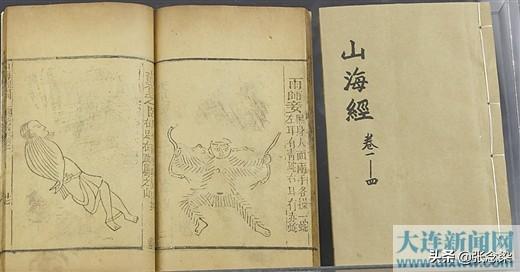 山海經
卷一–四
雨師妾
黑身人面兩手各操一蛇
左耳有青蛇右耳有赤蛇
大连新闻网
头条 @张念